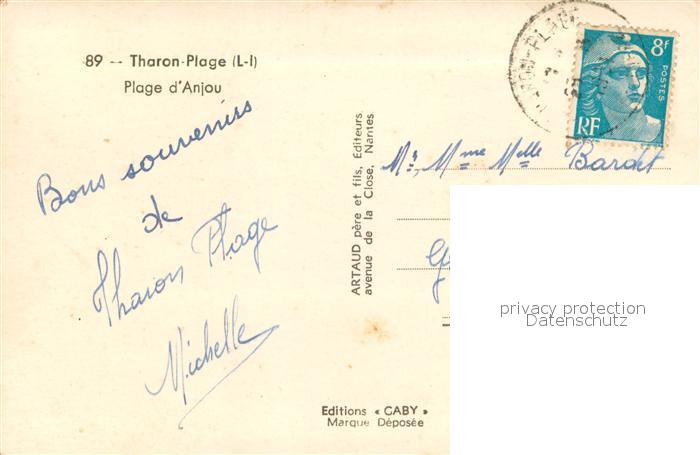 89 -- Tharon-Plage (L-I)
Plage d'Anjou
Bons souvenirs
de
Tharon Plage
Michelle
ARTAUD père et fils, Editeurs
avenue de la Close, Nantes
Editions « GABY »
Marque Déposée
8f
POSTES
RF
Mr, Mme Melle Bardet
privacy protection
Datenschutz